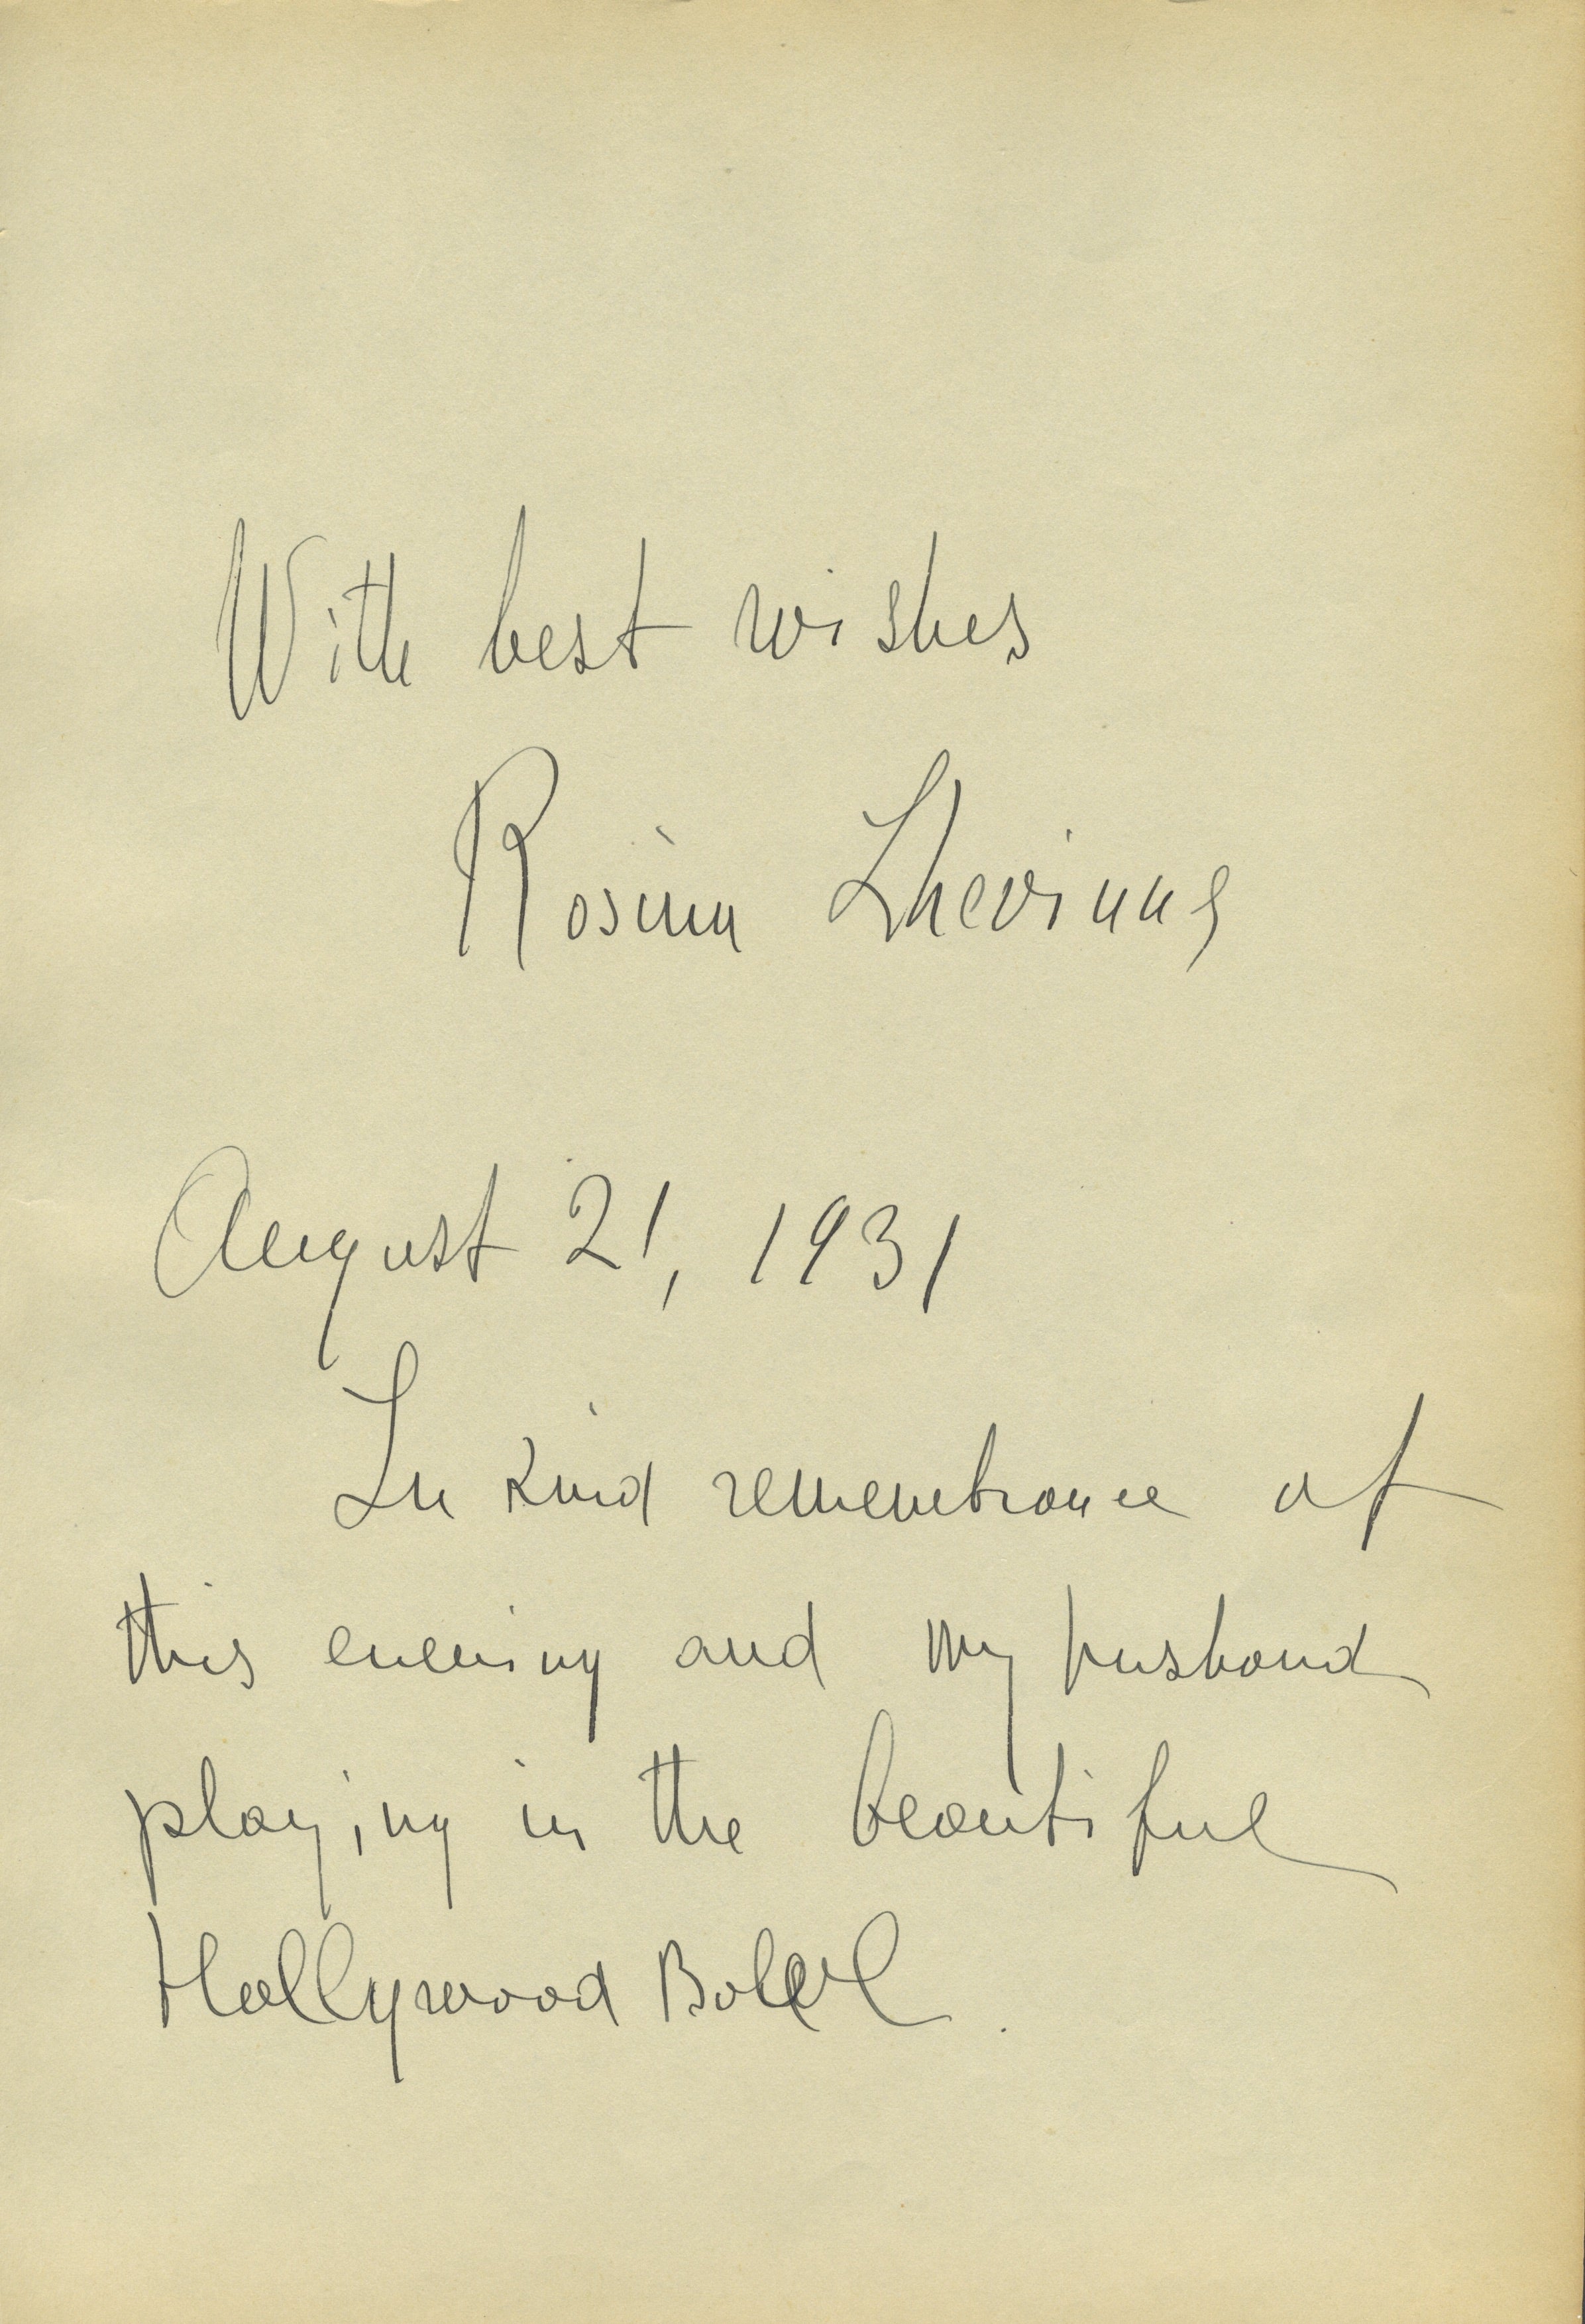 With best wishes
Rosina Lhevinne
August 21, 1931
In kind remembrance of
this evening and my husband
playing in the beautiful
Hollywood Bowl.